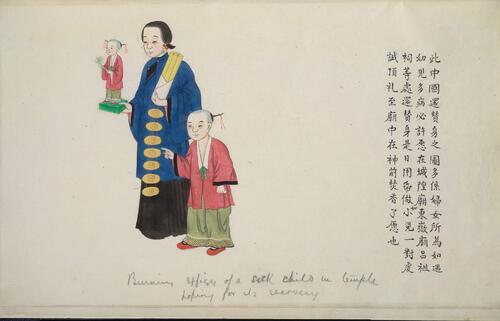 此中國還替身之圖多係婦女所為如遇
幼兒多病必許愿在城隍廟東嶽廟呂祖
祠等處還替身是日用帋做如小兒一對虔
誠頂礼至廟中在神前焚者了愿也
Burning effigy of a sick child in temple
hoping for its recovery